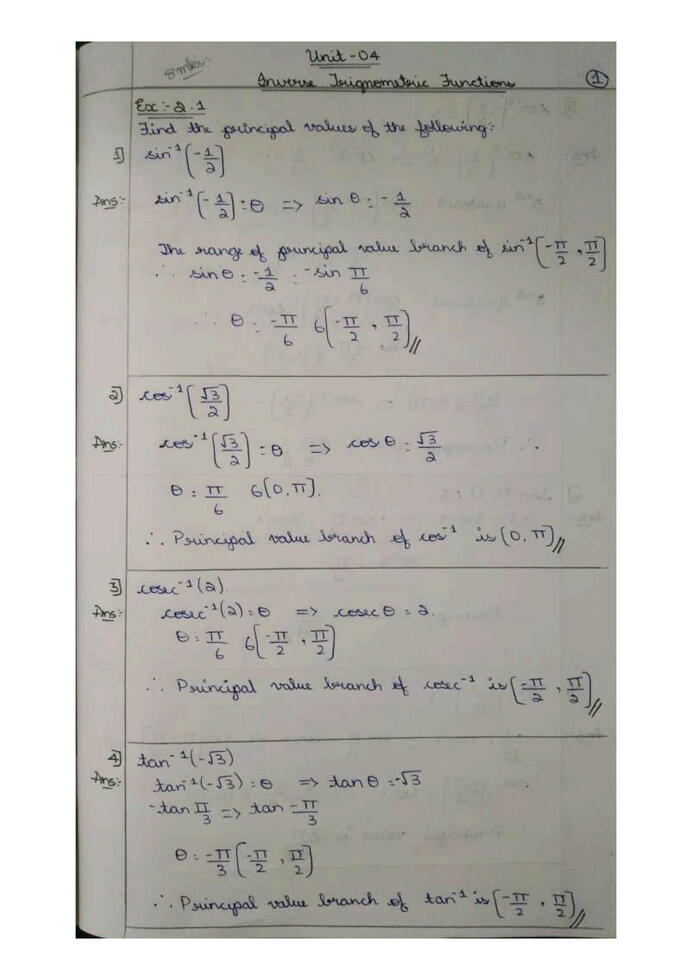 Unit - 04
8 mks:
Inverse Trignometric Functions
1
Ex:- 2.1
Find the principal values of the following:-
1] sin⁻¹[-1/2]
Ans:- sin⁻¹[-1/2] = θ => sin θ = -1/2
The range of principal value branch of sin⁻¹[-π/2, π/2]
∴ sin θ = -1/2 = -sin π/6
∴ θ = -π/6 6[-π/2, π/2]//
2] cos⁻¹[√3/2]
Ans:- cos⁻¹[√3/2] = θ => cos θ = √3/2 ∴
θ = π/6 6[0, π].
∴ Principal value branch of cos⁻¹ is [0, π]//
3] cosec⁻¹(2)
Ans:- cosec⁻¹(2) = θ => cosec θ = 2.
θ = π/6 6[-π/2, π/2]
∴ Principal value branch of cosec⁻¹ is [-π/2, π/2]//
4] tan⁻¹(-√3)
Ans:- tan⁻¹(-√3) = θ => tan θ = -√3
-tan π/3 => tan -π/3
θ = -π/3 [-π/2, π/2]
∴ Principal value branch of tan⁻¹ is [-π/2, π/2]//